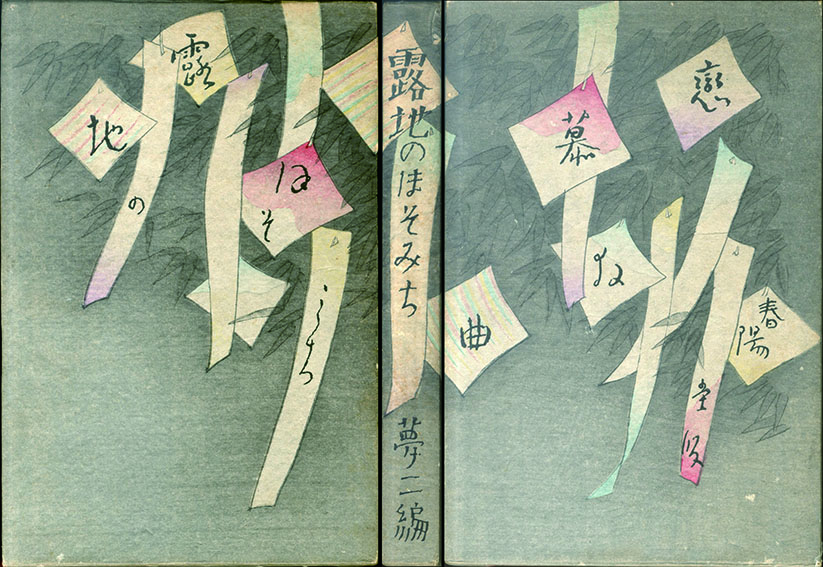 露地の
ほそみち
露地のほそみち
夢二編
戀慕
曲
春陽堂版